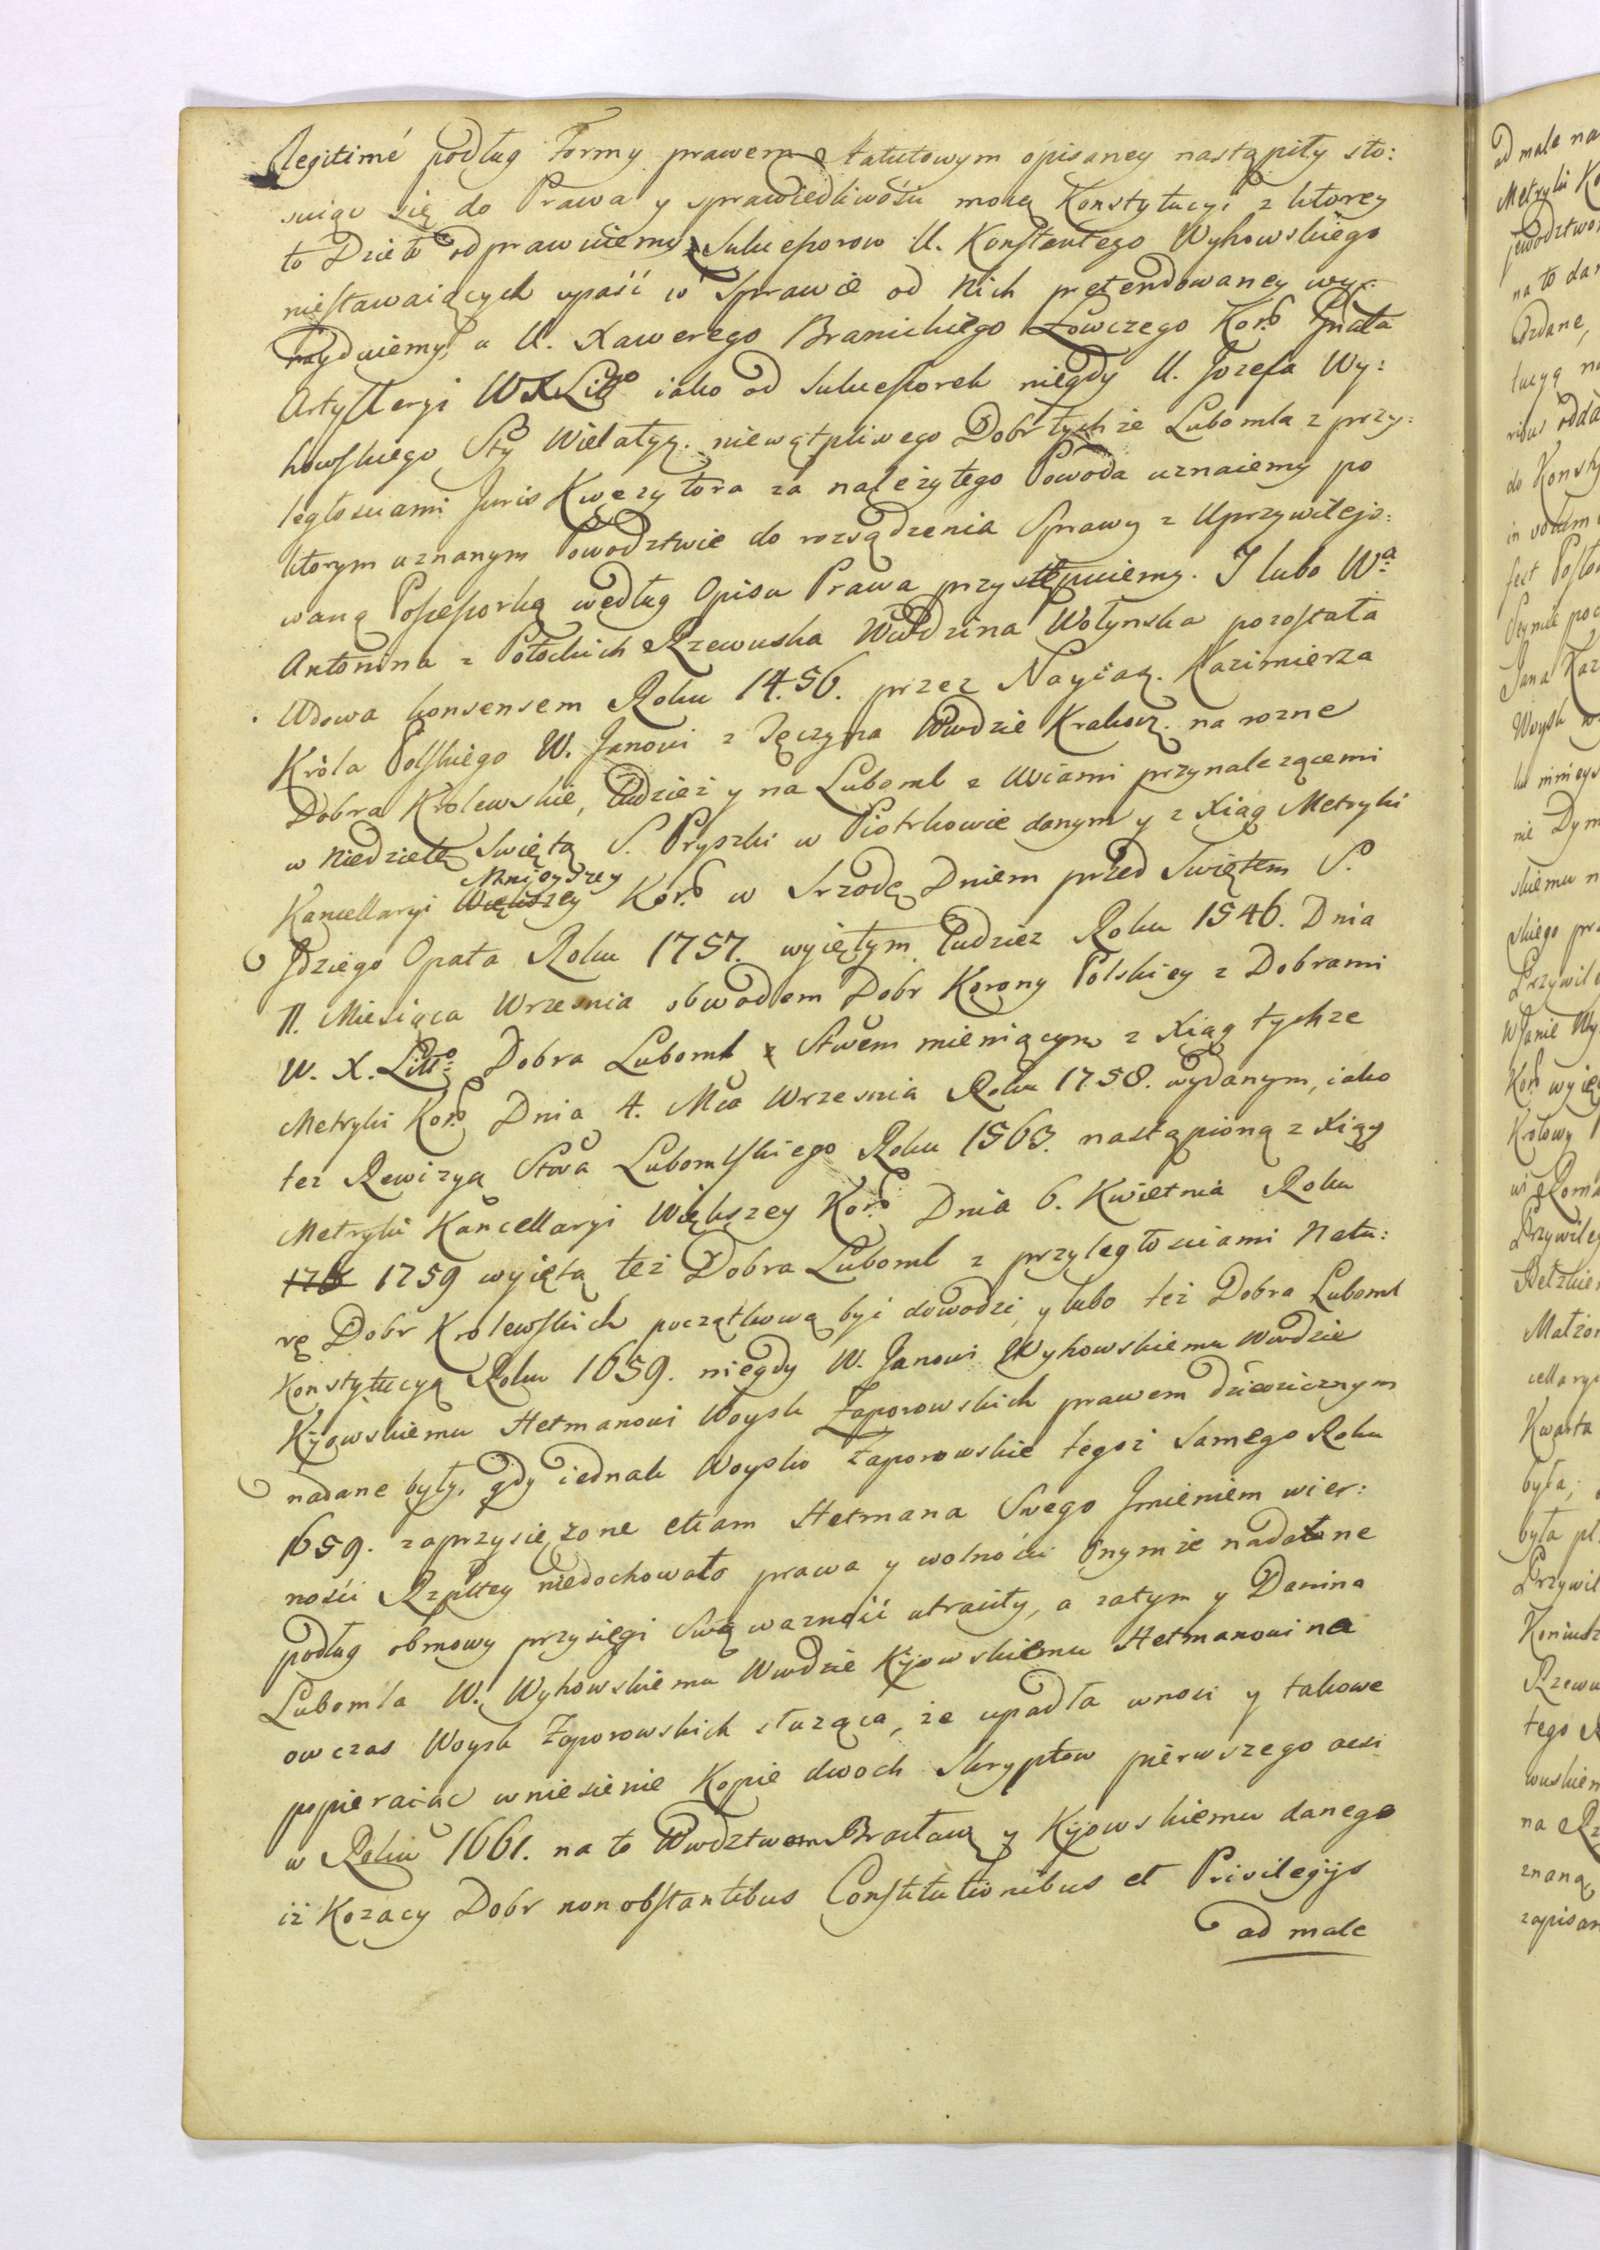 legitimé podług Formy prawem statutowym opisaney nastąpiły sto:
suiąc się do Prawa y sprawiedliwości mocą Konstytucyi z ktorey
to Dzieło odprawuiemy, Sukcessorow U. Konstantego Wyhowskiego
niestawaiących upaść w Sprawie od nich pretendowaney
u U. Xawerego Branickiego Łowczego Kor
Artylleryi W X Litt iako od Sukcessorek niegdy U. Jozefa Wy:
howskiego Sty Wielatyc. niewątpliwego Dobr tychże Lubomla z przy:
ległosciami Juris za należytego Powoda uznaiemy po
ktorym uznanym Powodztwie do rozsądzenia Sprawy z Uprzywilejo:
waną Possessorką według Opisu Prawa przystępuiemy. I lubo Wa
Antonina z Potockich Rzewuska Wwdzina Wołynska pozostała
Wdowa konsensem Roku 1456. przez Nayiaś. Kazimierza
Króla Polskiego W. Janowi z Tęczyna Wwdzie Krakow. na rozne
Dobra Krolewskie, tudzież y na Luboml z Wsiami przynalezącemi
w Niedzielę Swiętą S. Pryszki w Piotrkowie danym y z Xiąg Metryki
Mnieyszey
Kancellaryi Większey Kor w Srzodę Dniem przed Swiętem S.
Jdziego Opata Roku 1757. wyiętym. Tudziez Roku 1546. Dnia
11. Miesiąca Wrzesnia obwodem Dobr Korony Polskiey z Dobrami
W. X. Litt Dobra Luboml Stwem mieniącym z Xiąg tychze
Metryki Kor Dnia 4. Mca Wrzesnia Roku 1758. wydanym, iako
tez Rewizyą Stwa Lubomlskiego Roku 1563. nastąpioną z Xiąg
Metryki Kancellaryi Większey Kor Dnia 6. Kwietnia Roku
1759 wyiętą też Dobra Luboml z przyległosciami Natu:
rę Dobr Krolewskich początkową być dowodzi, y lubo też Dobra Luboml
Konstytucyą Roku 1659. niegdy W. Janowi Wyhowskiemu Wwdzie
Kijowskiemu Hetmanowi Woysk Zaporowskich prawem dziedzicznym
nadane były, gdy iednak Woysko Zaporowskie tegoż Samego Roku
1659. zaprzysiężone etiam Hetmana Swego Jmieniem wier:
ności Rzpltey niedochowało prawa y wolności Onymże nadane
podług obmowy przysięgi Swą ważność utraciły, a zatym y Danina
Lubomla W. Wyhowskiemu Wwdzie Kijowskiemu Hetmanowi na
ow czas Woysk Zaporowskich służąca, że upadła wnosi y takowe
popieraiąc wniesienie Kopie dwoch Skryptow pierwszego acsi
w Roku 1661. na to Wwdztwom Bracław y Kijowskiemu danego
iż Kozacy Dobr non obstantibus Constitutionibus et Privilegijs
ad male